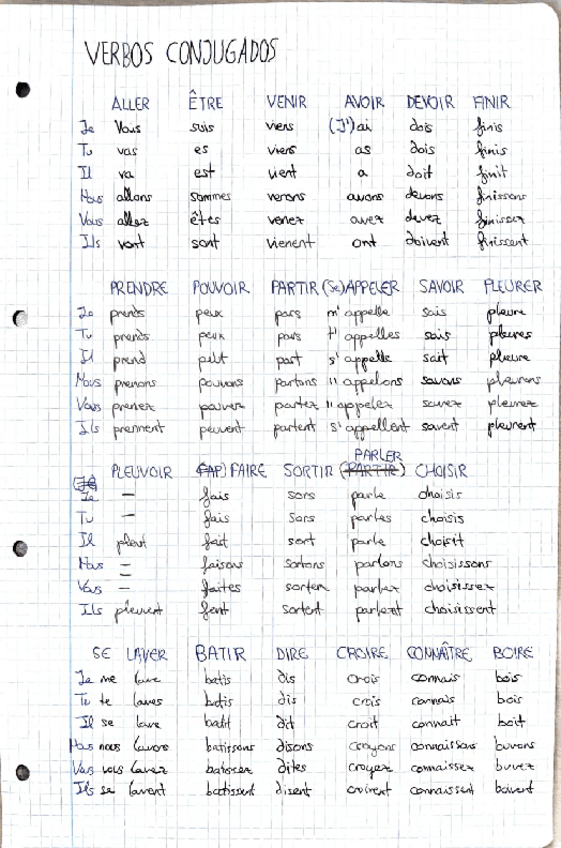 VERBOS CONJUGADOS
ALLER ÊTRE VENIR AVOIR DEVOIR FINIR
Je Vais suis viens (J')ai dois finis
Tu vas es viens as dois finis
Il va est vient a doit finit
Nous allons sommes venons avons devons finissons
Vous allez êtes venez avez devez finissez
Ils vont sont vienent ont doivent finissent
PRENDRE POUVOIR PARTIR (Se)APPELER SAVOIR PLEURER
Je prends peux pars m'appelle sais pleure
Tu prends peux pars t'appelles sais pleures
Il prend peut part s'appelle sait pleure
Nous prenons pouvons partons " appelons savons pleurons
Vous prenez pouvez partez " appelez savez pleurez
Ils prennent peuvent partent s'appellent savent pleurent
PARLER
PLEUVOIR FAIRE SORTIR (PARTIR) CHOISIR
Je – fais sors parle choisis
Tu – fais sors parles choisis
Il pleut fait sort parle choisit
Nous – faisons sortons parlons choisissons
Vous – faites sortez parlez choisissez
Ils pleuvent font sortent parlent choisissent
SE LAVER BATIR DIRE CROIRE CONNAÎTRE BOIRE
Je me lave batis dis crois connais bois
Tu te laves batis dis crois connais bois
Il se lave batit dit croit connait boit
Nous nous lavons batissons disons croyons connaissons buvons
Vous vous lavez batissez dites croyez connaissez buvez
Ils se lavent batissent disent croirent connaissent boivent